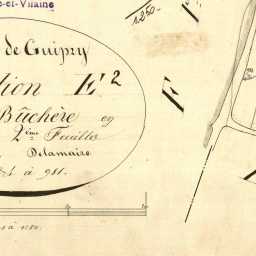 et-Vilaine
1250.
de Guipry
tion E²
F
Bûchère
2ème Feuille
Delamaire
à 911.
à 1250.